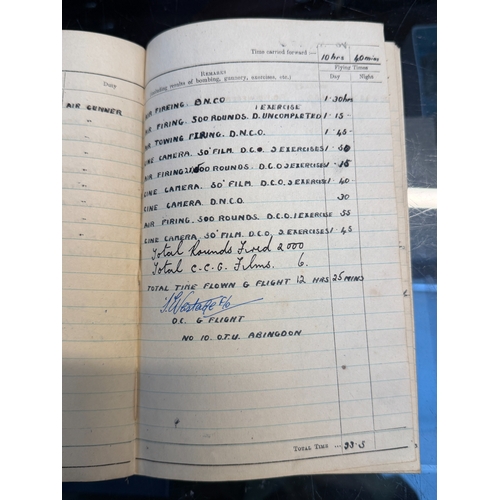 Time carried forward:— 10 hrs 40 mins
Duty
REMARKS
(including results of bombing, gunnery, exercises, etc.)
Flying Times
Day Night
AIR GUNNER
AIR FIREING. D.N.CO 1·30hrs
1 EXERCISE
AIR FIRING. 500 ROUNDS. D.UNCOMPLETED 1·15-
AIR TOWING FIRING. D.N.C.O. 1·45-
CINE CAMERA. 50' FILM. D.C.O. 3 EXERCISES
AIR FIRING ROUNDS. D.C.O 3 EXERCISES 1·15
CINE CAMERA. 50' FILM. D.C.O. 3 EXERCISES 1·40
CINE CAMERA. D.N.C.O. 30
AIR FIRING. 500 ROUNDS. D.C.O. 1 EXERCISE 55
CINE CAMERA. 50' FILM. D.C.O, 3 EXERCISES 1·45
Total Rounds Fired 2000
Total C.C.G. Films. 6.
TOTAL TIME FLOWN G FLIGHT 12 HRS 25 MINS
O.C. G FLIGHT
NO 10. O.T.U. ABINGDON
TOTAL TIME ... 23·5